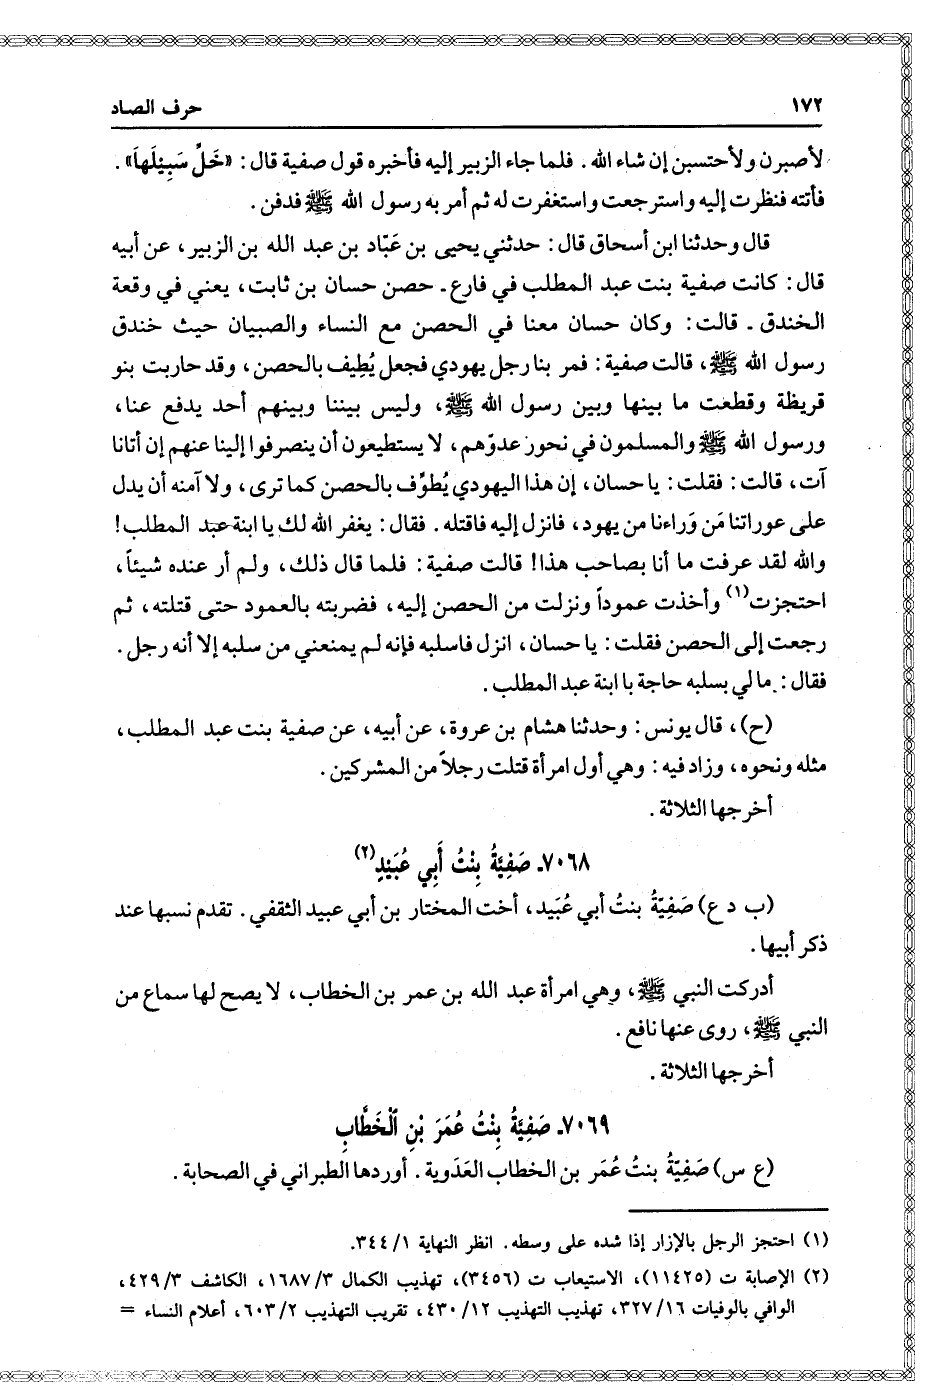 ١٧٢ حرف الصاد
لأصبرن ولأحتسبن إن شاء الله. فلما جاء الزبير إليه فأخبره قول صفية قال: «خَلِّ سَبِيْلَها».
فأتته فنظرت إليه واسترجعت واستغفرت له ثم أمر به رسول الله ﷺ فدفن.
قال وحدثنا ابن أسحاق قال: حدثني يحيى بن عَبّاد بن عبد الله بن الزبير، عن أبيه
قال: كانت صفية بنت عبد المطلب في فارع ـ حصن حسان بن ثابت، يعني في وقعة
الخندق ـ قالت: وكان حسان معنا في الحصن مع النساء والصبيان حيث خندق
رسول الله ﷺ، قالت صفية: فمر بنا رجل يهودي فجعل يُطِيف بالحصن، وقد حاربت بنو
قريظة وقطعت ما بينها وبين رسول الله ﷺ، وليس بيننا وبينهم أحد يدفع عنا،
ورسول الله ﷺ والمسلمون في نحور عدوّهم، لا يستطيعون أن ينصرفوا إلينا عنهم إن أتانا
آت، قالت: فقلت: يا حسان، إن هذا اليهودي يُطوِّف بالحصن كما ترى، ولا آمنه أن يدل
على عوراتنا مَن وَراءنا من يهود، فانزل إليه فاقتله. فقال: يغفر الله لك يا ابنة عبد المطلب!
والله لقد عرفت ما أنا بصاحب هذا! قالت صفية: فلما قال ذلك، ولم أر عنده شيئاً،
احتجزت(١) وأخذت عموداً ونزلت من الحصن إليه، فضربته بالعمود حتى قتلته، ثم
رجعت إلى الحصن فقلت: يا حسان، انزل فاسلبه فإنه لم يمنعني من سلبه إلا أنه رجل.
فقال: ما لي بسلبه حاجة با ابنة عبد المطلب.
(ح)، قال يونس: وحدثنا هشام بن عروة، عن أبيه، عن صفية بنت عبد المطلب،
مثله ونحوه، وزاد فيه: وهي أول امرأة قتلت رجلاً من المشركين.
أخرجها الثلاثة.
٧٠٦٨ـ صَفِيَّةُ بِنْتُ أَبِي عُبَيْدٍ(٢)
(ب د ع) صَفِيّةُ بنتُ أبي عُبَيد، أخت المختار بن أبي عبيد الثقفي. تقدم نسبها عند
ذكر أبيها.
أدركت النبي ﷺ، وهي امرأة عبد الله بن عمر بن الخطاب، لا يصح لها سماع من
النبي ﷺ، روى عنها نافع.
أخرجها الثلاثة.
٧٠٦٩ـ صَفِيَّةُ بِنْتُ عُمَرَ بْنِ ٱلْخَطَّابِ
(ع س) صَفِيّةُ بنتُ عُمَر بن الخطاب العَدَوية. أوردها الطبراني في الصحابة.
(١) احتجز الرجل بالإزار إذا شده على وسطه. انظر النهاية ٣٤٤/١.
(٢) الإصابة ت (١١٤٢٥)، الاستيعاب ت (٣٤٥٦)، تهذيب الكمال ١٦٨٧/٣، الكاشف ٤٢٩/٣،
الوافي بالوفيات ٣٢٧/١٦، تهذيب التهذيب ٤٣٠/١٢، تقريب التهذيب ٦٠٣/٢، أعلام النساء =